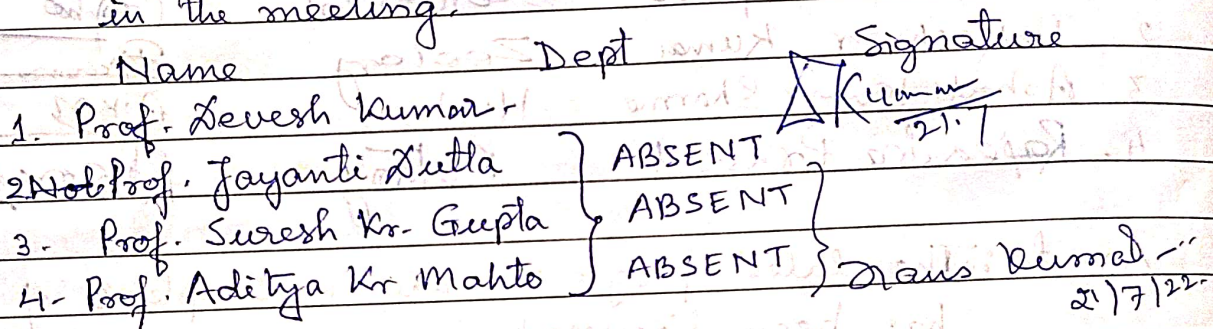 in the meeting.
Name Dept Signature
1. Prof. Devesh Kumar. Kumar
21.7
2 Not Prof. Jayanti Dutta ABSENT
3- Prof. Suresh Kr. Gupta ABSENT
4- Prof. Aditya Kr Mahto ABSENT Kumar
21/7/22.